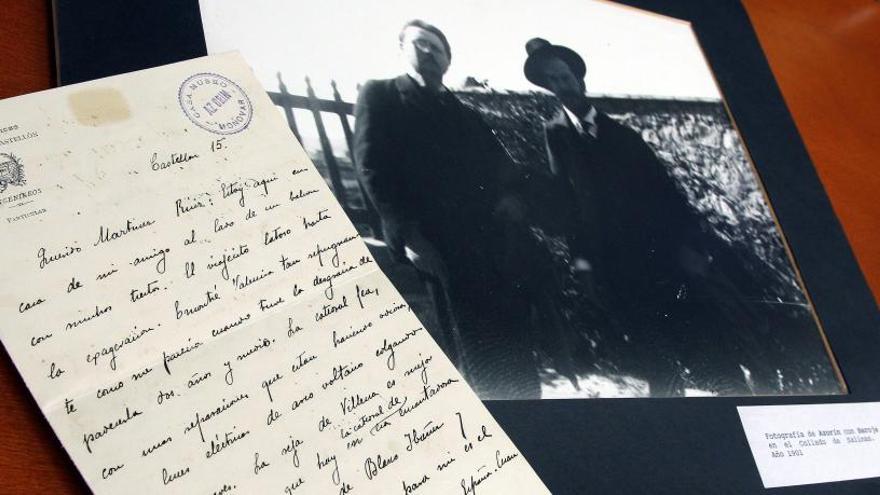 CASTELLÓN
INGENIEROS
PARTICULAR
CASA MUSEO
AZORIN
MONOVAR
Castellón 15.
Querido Martinez Ruiz: Estoy aquí en
casa de mi amigo al lado de un balcón
con muchos tiestos. El viajecito latoso hasta
la exageración. Encontré Valencia tan repugnante
como me parecía cuando tuve la desgracia de
dos años y medio. La catedral fea,
con unas reparaciones que están haciendo ahora,
luces eléctricas de arco voltaico colgando
La reja de Villena es mejor
la catedral de
que hay en una encantadora
de Blasco Ibáñez y
para mi es el
España. Cuan
Fotografía de Azorín con Baroja
en el Collado de Salinas.
Año 1901